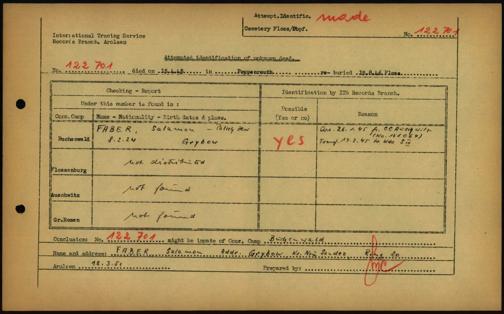 Attempt.Identific. made
Cemetery Floss/Opf.
International Tracing Service
Records Branch, Arolsen
No. 122 701
Attempted identification of unknown dead.
No. 122 701 died on in Peppenreuth re-buried Floss.
Checking - Report
Identification by ITS Records Branch.
Under this number is found :
Possible (Yes or no)
Reason
Conc.Camp
Name - Nationality - Birth dates & place.
Buchenwald
FABER, Salamon -
8.2.24 Grybow
yes
Flossenburg
not distributed
Auschwitz
not found
Gr.Rosen
not found
Conclusion: No. 122 701 might be inmate of Conc. Camp Buchenwald
Name and address: FABER Salamon Grybow
Arolsen 12.3.51 Prepared by: